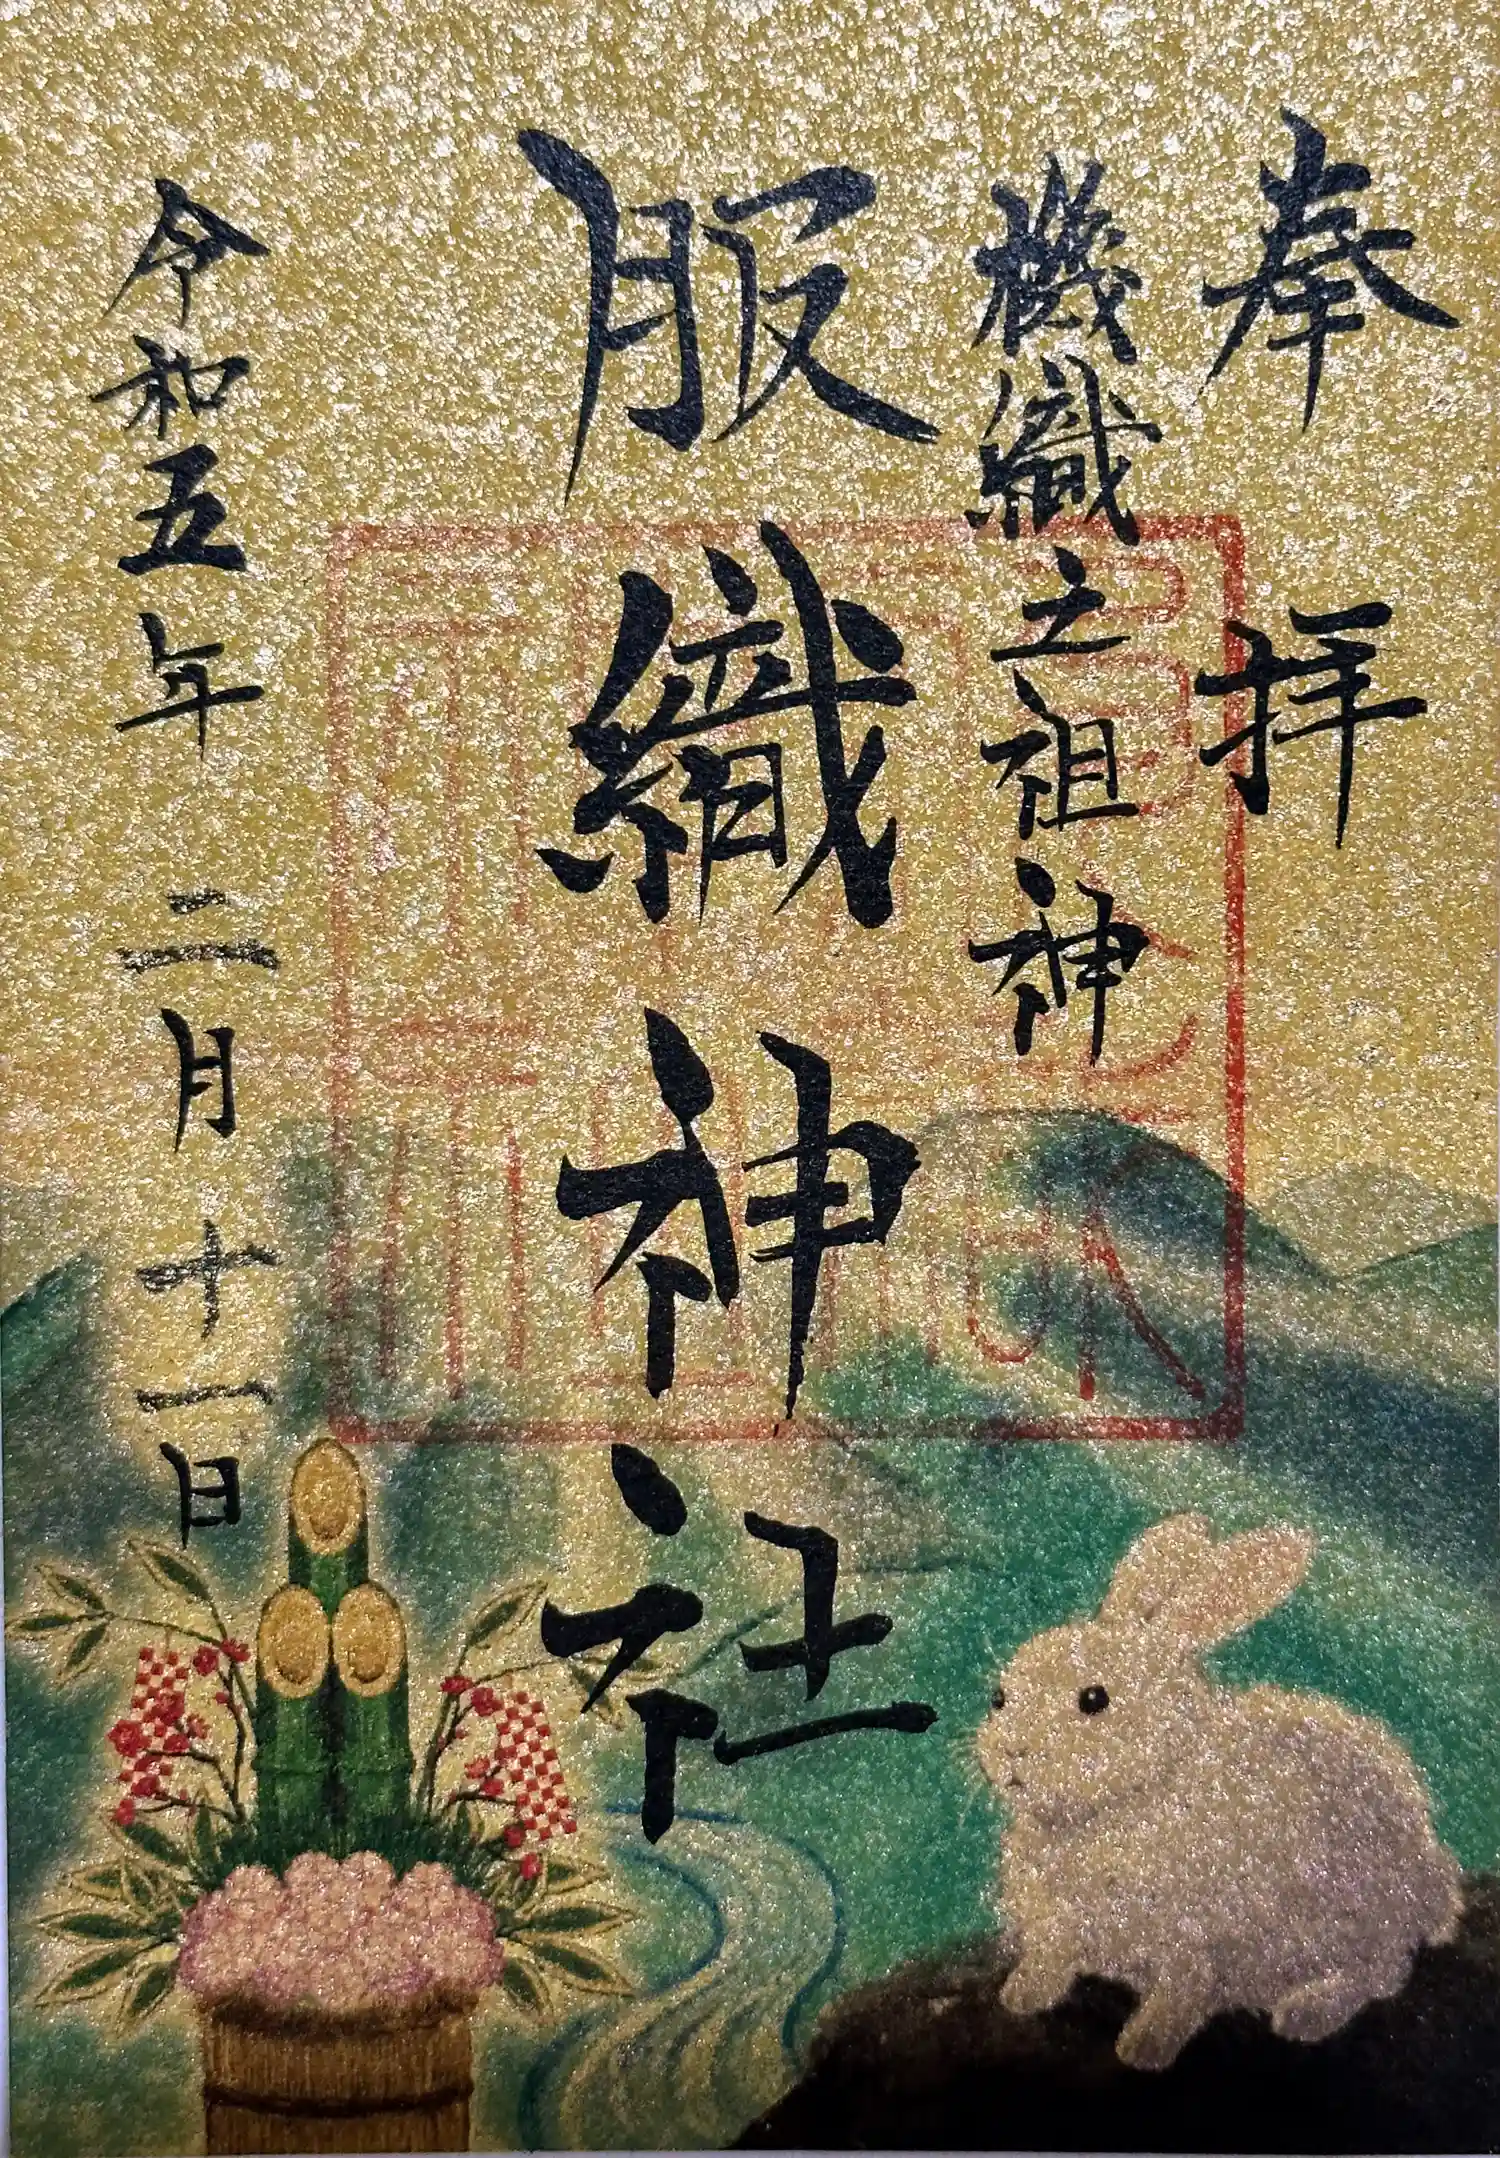 奉拝
機織之祖神
服織神社
令和五年二月十一日